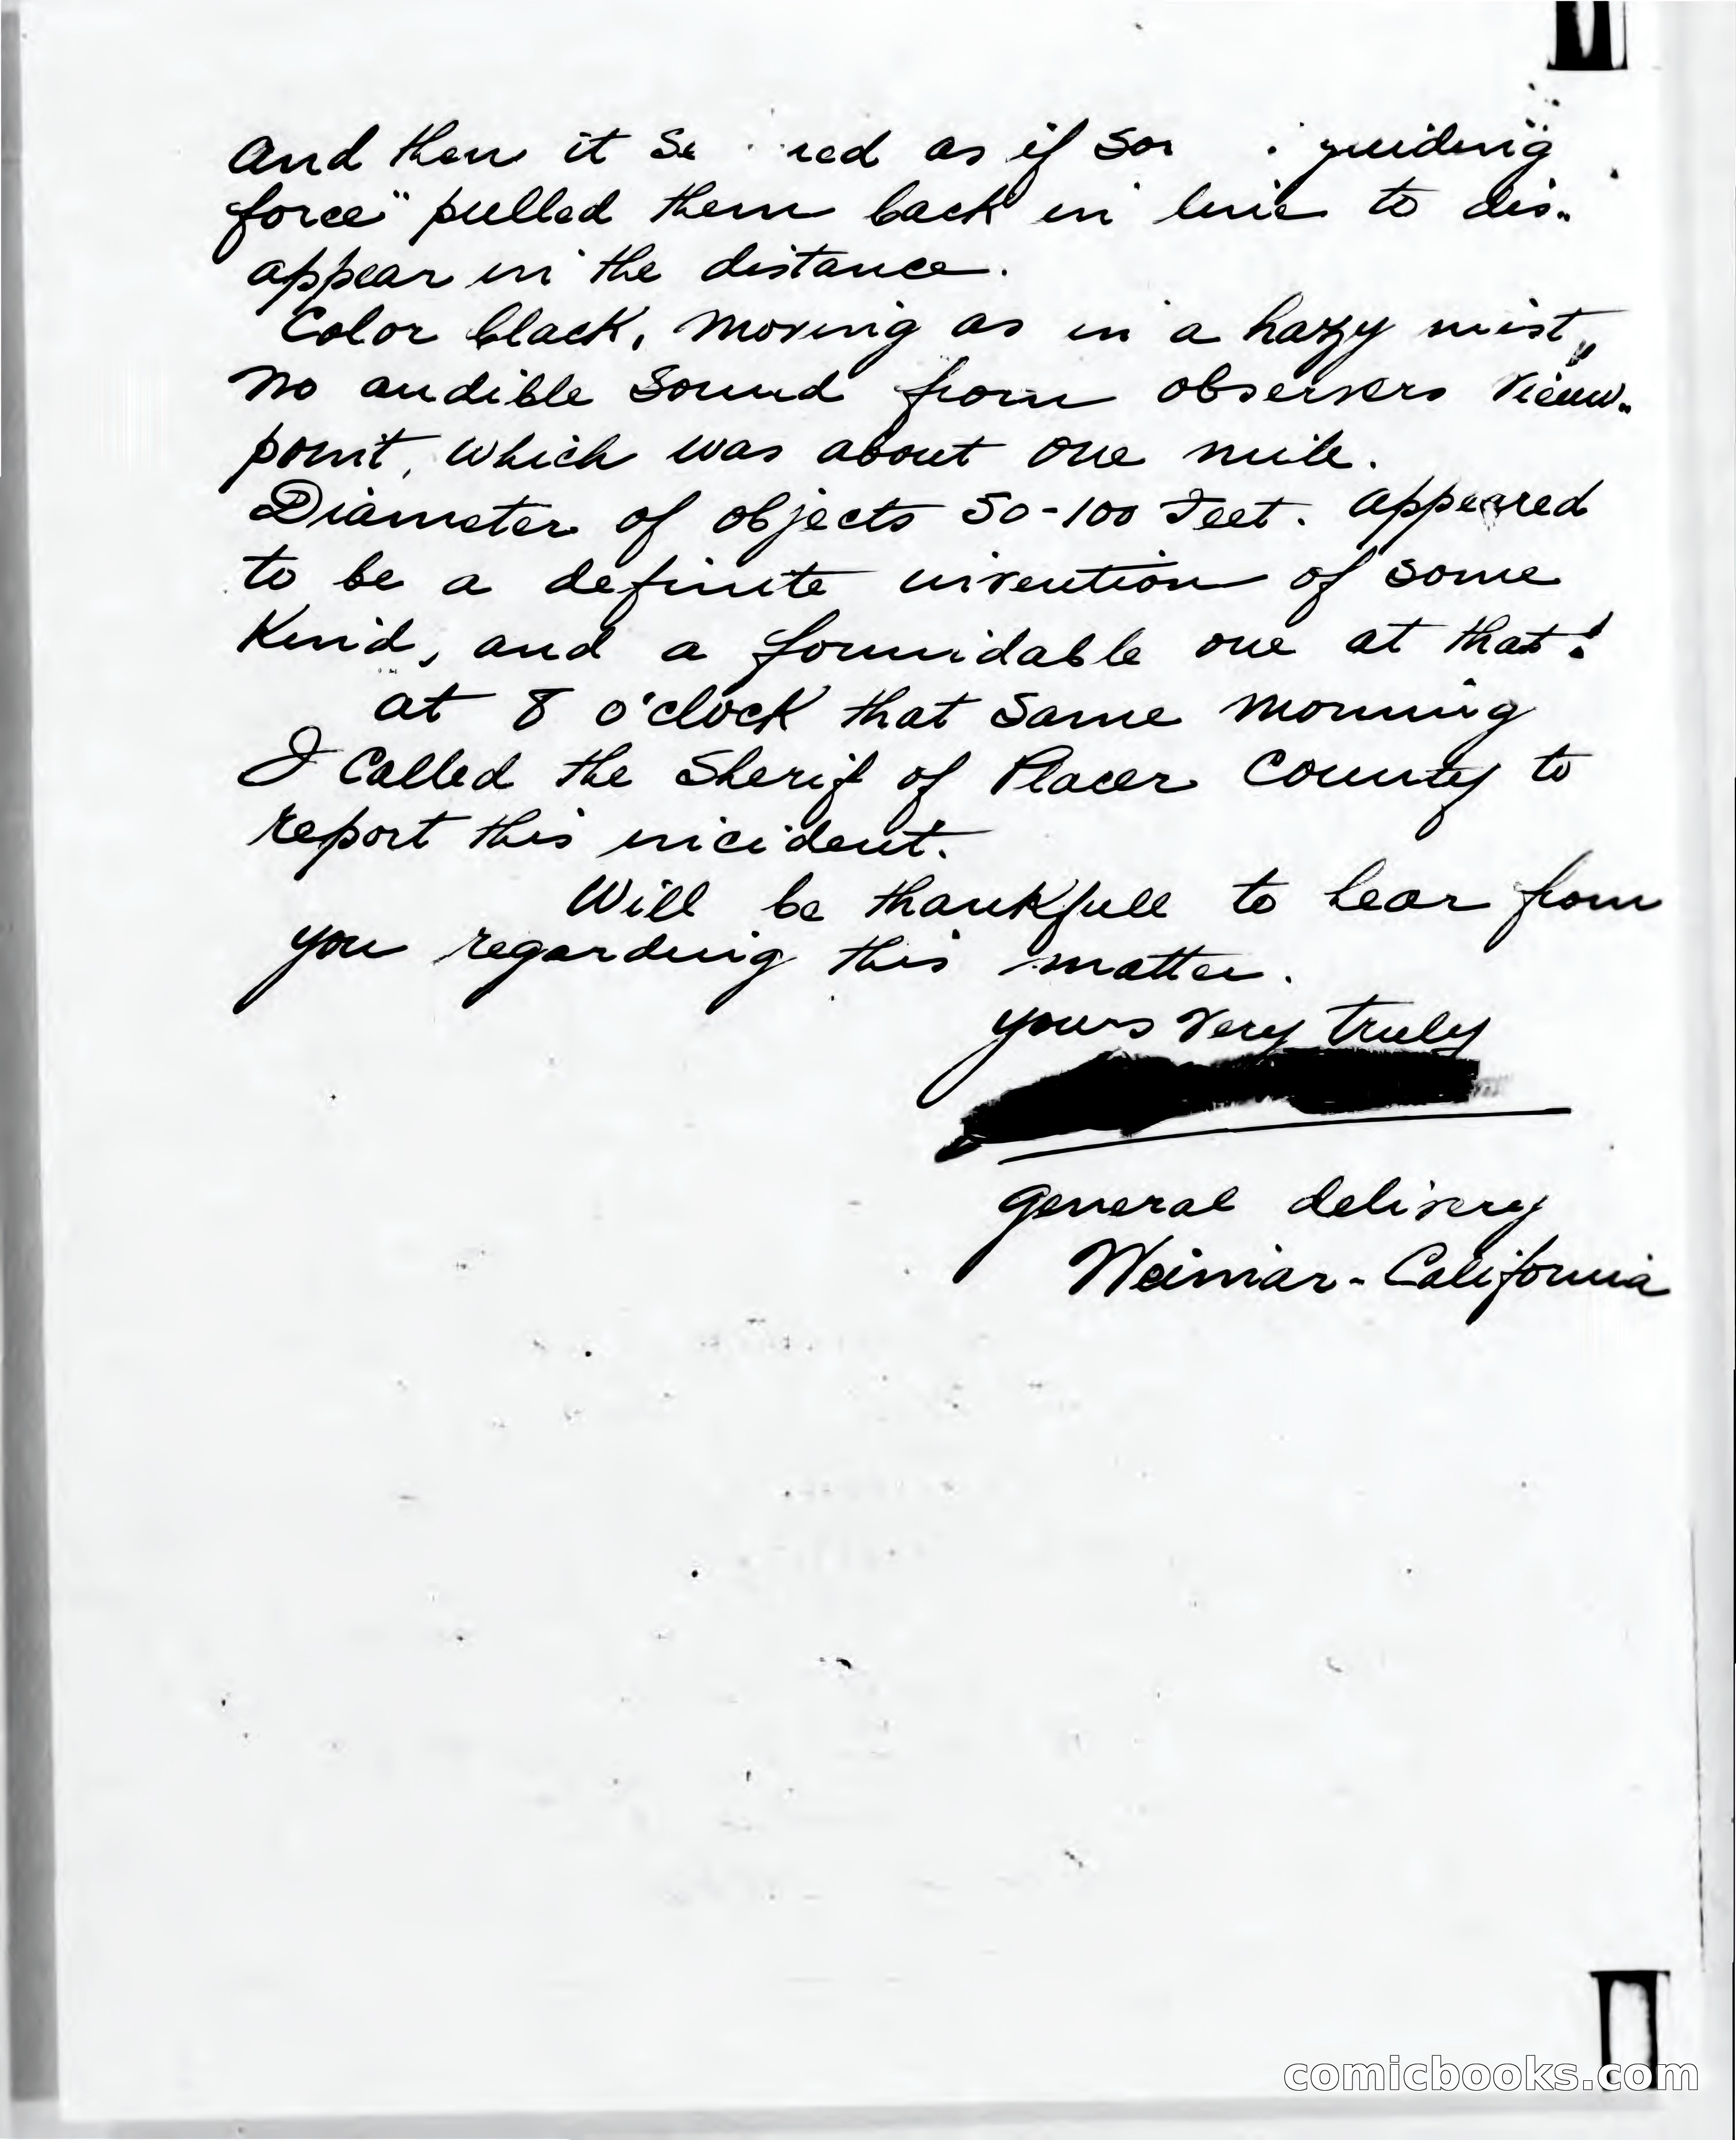 and then it se red as if so guiding
force" pulled them back in line to dis-
appear in the distance.
Color black, moving as in a hazy mist,
no audible sound from observers view-
point, which was about one mile.
Diameter of objects 50-100 feet. appeared
to be a definite invention of some
kind, and a formidable one at that!
at 8 o'clock that same morning
I called the Sherif of Placer County to
report this incident.
Will be thankfull to hear from
you regarding this matter.
yours very truly
general delivery
Weimar - California
comicbooks.com